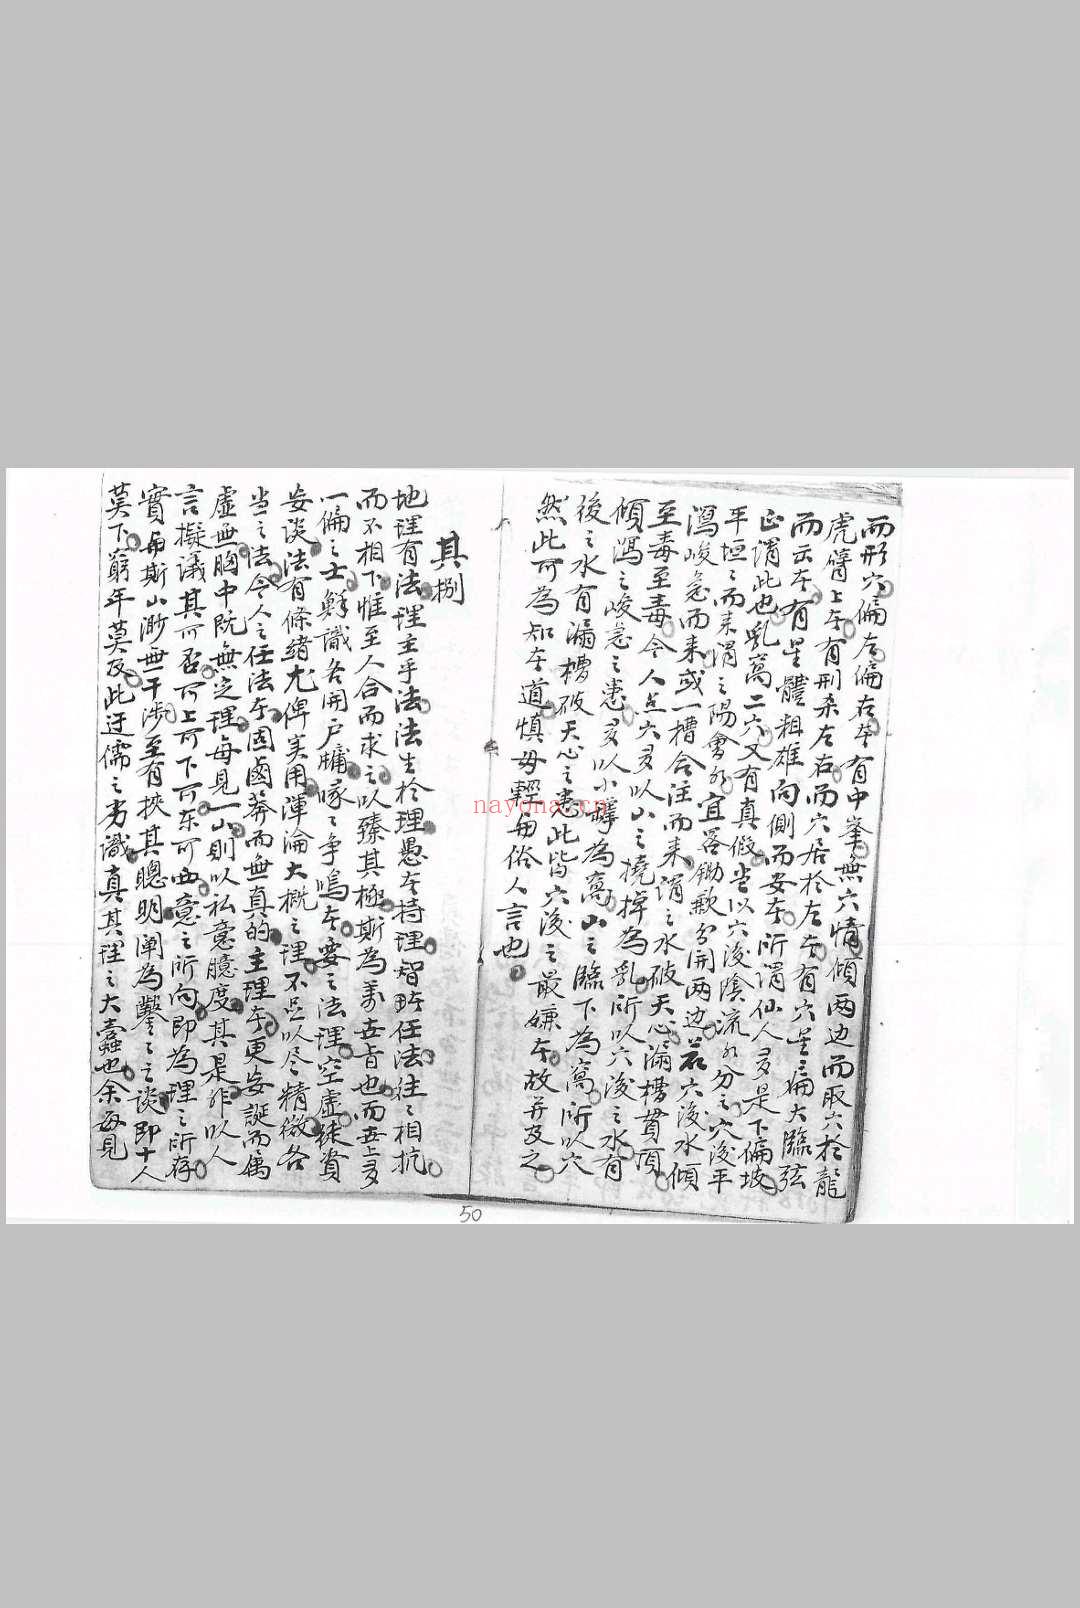 而形穴偏左偏右者有中峯無穴情傾两边而取穴於龍
虎臂上者有刑杀左右而穴居於左者有穴星偏大臨弦
而云者有星體粗雄向側而安者所謂仙人多是下偏坡
正謂此也乳窩二穴又有真假当以穴後陰流水分之穴後平
平坦之而来謂之陽會水宜畧锄歉分開两边若穴後水傾
瀉峻急而来或一槽合注而来謂之水破天心漏槽貫頂
至毒至毒今人点穴多以山之撓掉為乳所以穴後之水有
傾瀉之峻急之患多以小𡋾為窩山之臨下為窩所以穴
後之水有漏槽破天心之患此皆穴後之最嫌者故并及之
然此可為知者道慎毋輕与俗人言也
其捌
地理有法理主乎法法生於理愚者持理智者任法往々相抗
而不相下惟至人合而求之以臻其極斯為善世者也而世上多
一偏之士鲜識各開户牖啄々争鳴者要之法理空虚徒資
妄談法有條緒尤俾実用渾淪大概之理不足以尽精微各
当之法今人之任法者固鹵莽而無真的主理者更妄誕而属
虚無胸中既無定理每見一山則以私意臆度其是非以人
言擬議其可否可上可下可东可西意之所向即為理之所存
實与斯山渺無干涉至有挾其聰明闡為鑿々之談即十人
莫下窮年莫及此迂儒之劣識真其理之大蠹也余每見
50
nayona.cn